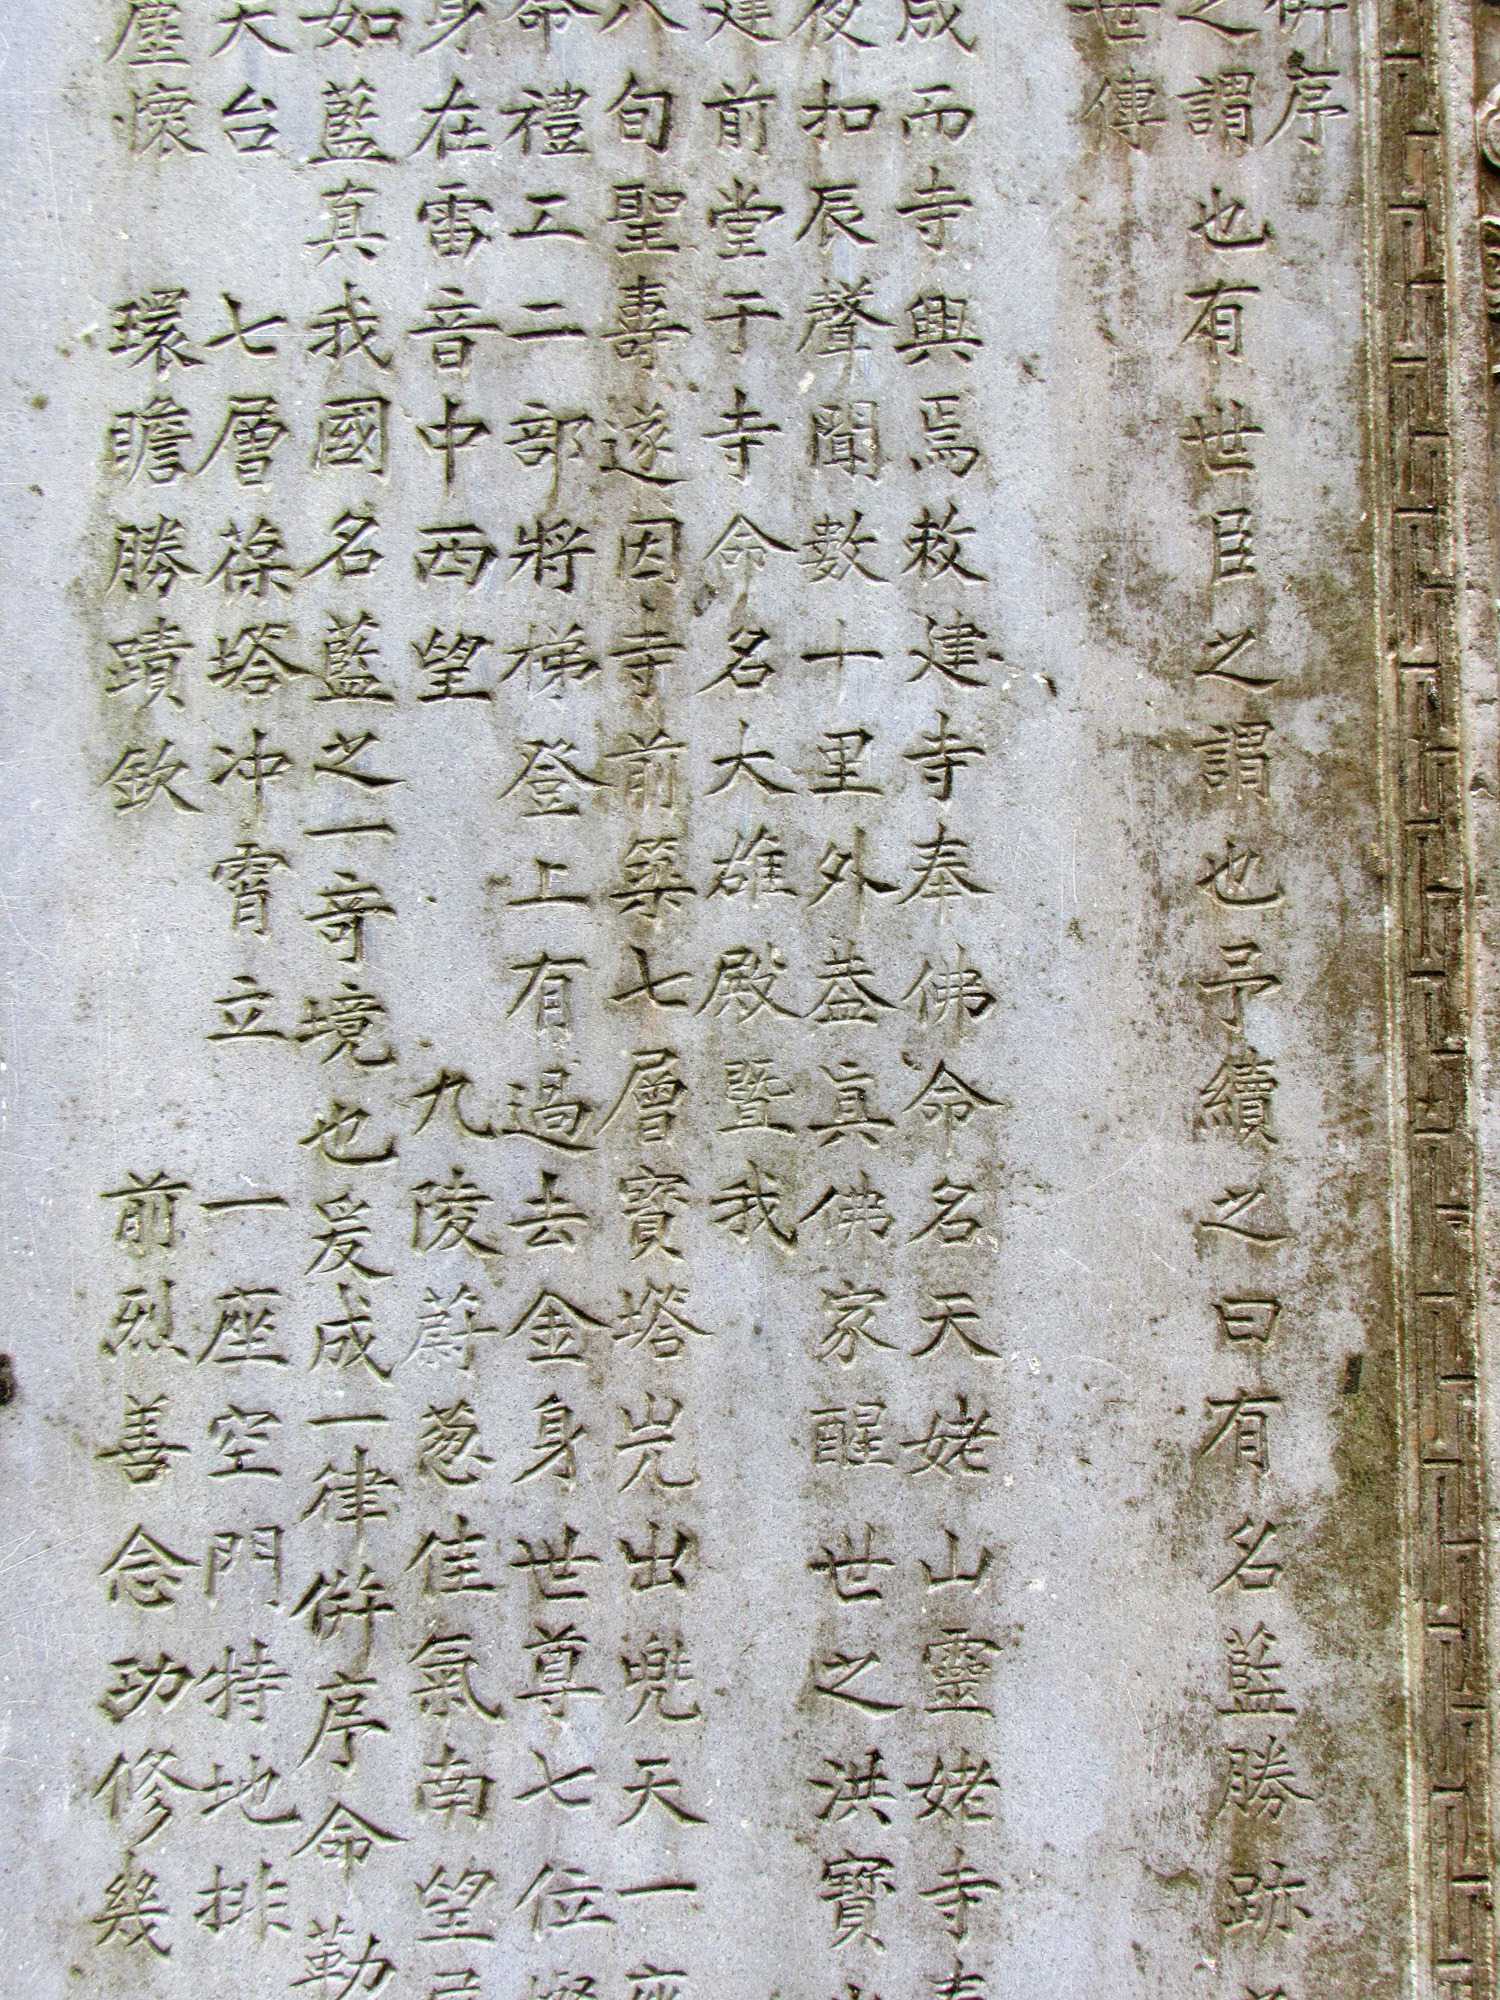 併序
之謂也有世臣之謂也予續之曰有名藍勝跡
世傳
成而寺興焉敕建寺奉佛命名天姥山靈姥寺
夜扣辰聲聞數十里外葢眞佛家醒世之洪寶
建前堂于寺命名大雄殿暨我
八旬聖壽遂因寺前築七層寶塔岁出兜天一座
命禮工二部將梯登上有過去金身世尊七位
身在雷音中西望 九陵蔚葱佳氣南望
如藍真我國名藍之一竒境也爰成一律併序命勒
天台 七層葆塔冲霄立 一座空門特地排
塵懷 環瞻勝蹟欽 前烈善念功修幾